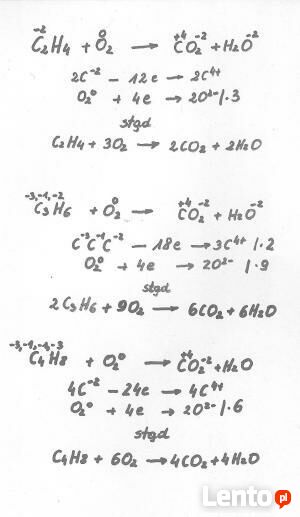 -2 0 +4 -2 -2
C2H4 + O2 → CO2 + H2O
2C⁻² - 12e → 2C⁴⁺
O2⁰ + 4e → 2O²⁻ / ·3
stąd
C2H4 + 3O2 → 2CO2 + 2H2O
-3,-1,-2 0 +4 -2 -2
C3H6 + O2 → CO2 + H2O
C⁻³C⁻¹C⁻² - 18e → 3C⁴⁺ / ·2
O2⁰ + 4e → 2O²⁻ / ·9
stąd
2C3H6 + 9O2 → 6CO2 + 6H2O
-3,-1,-1,-3 +4 -2
C4H8 + O2⁰ → CO2 + H2O
4C⁻² - 24e → 4C⁴⁺
O2⁰ + 4e → 2O²⁻ / ·6
stąd
C4H8 + 6O2 → 4CO2 + 4H2O
Lento.pl